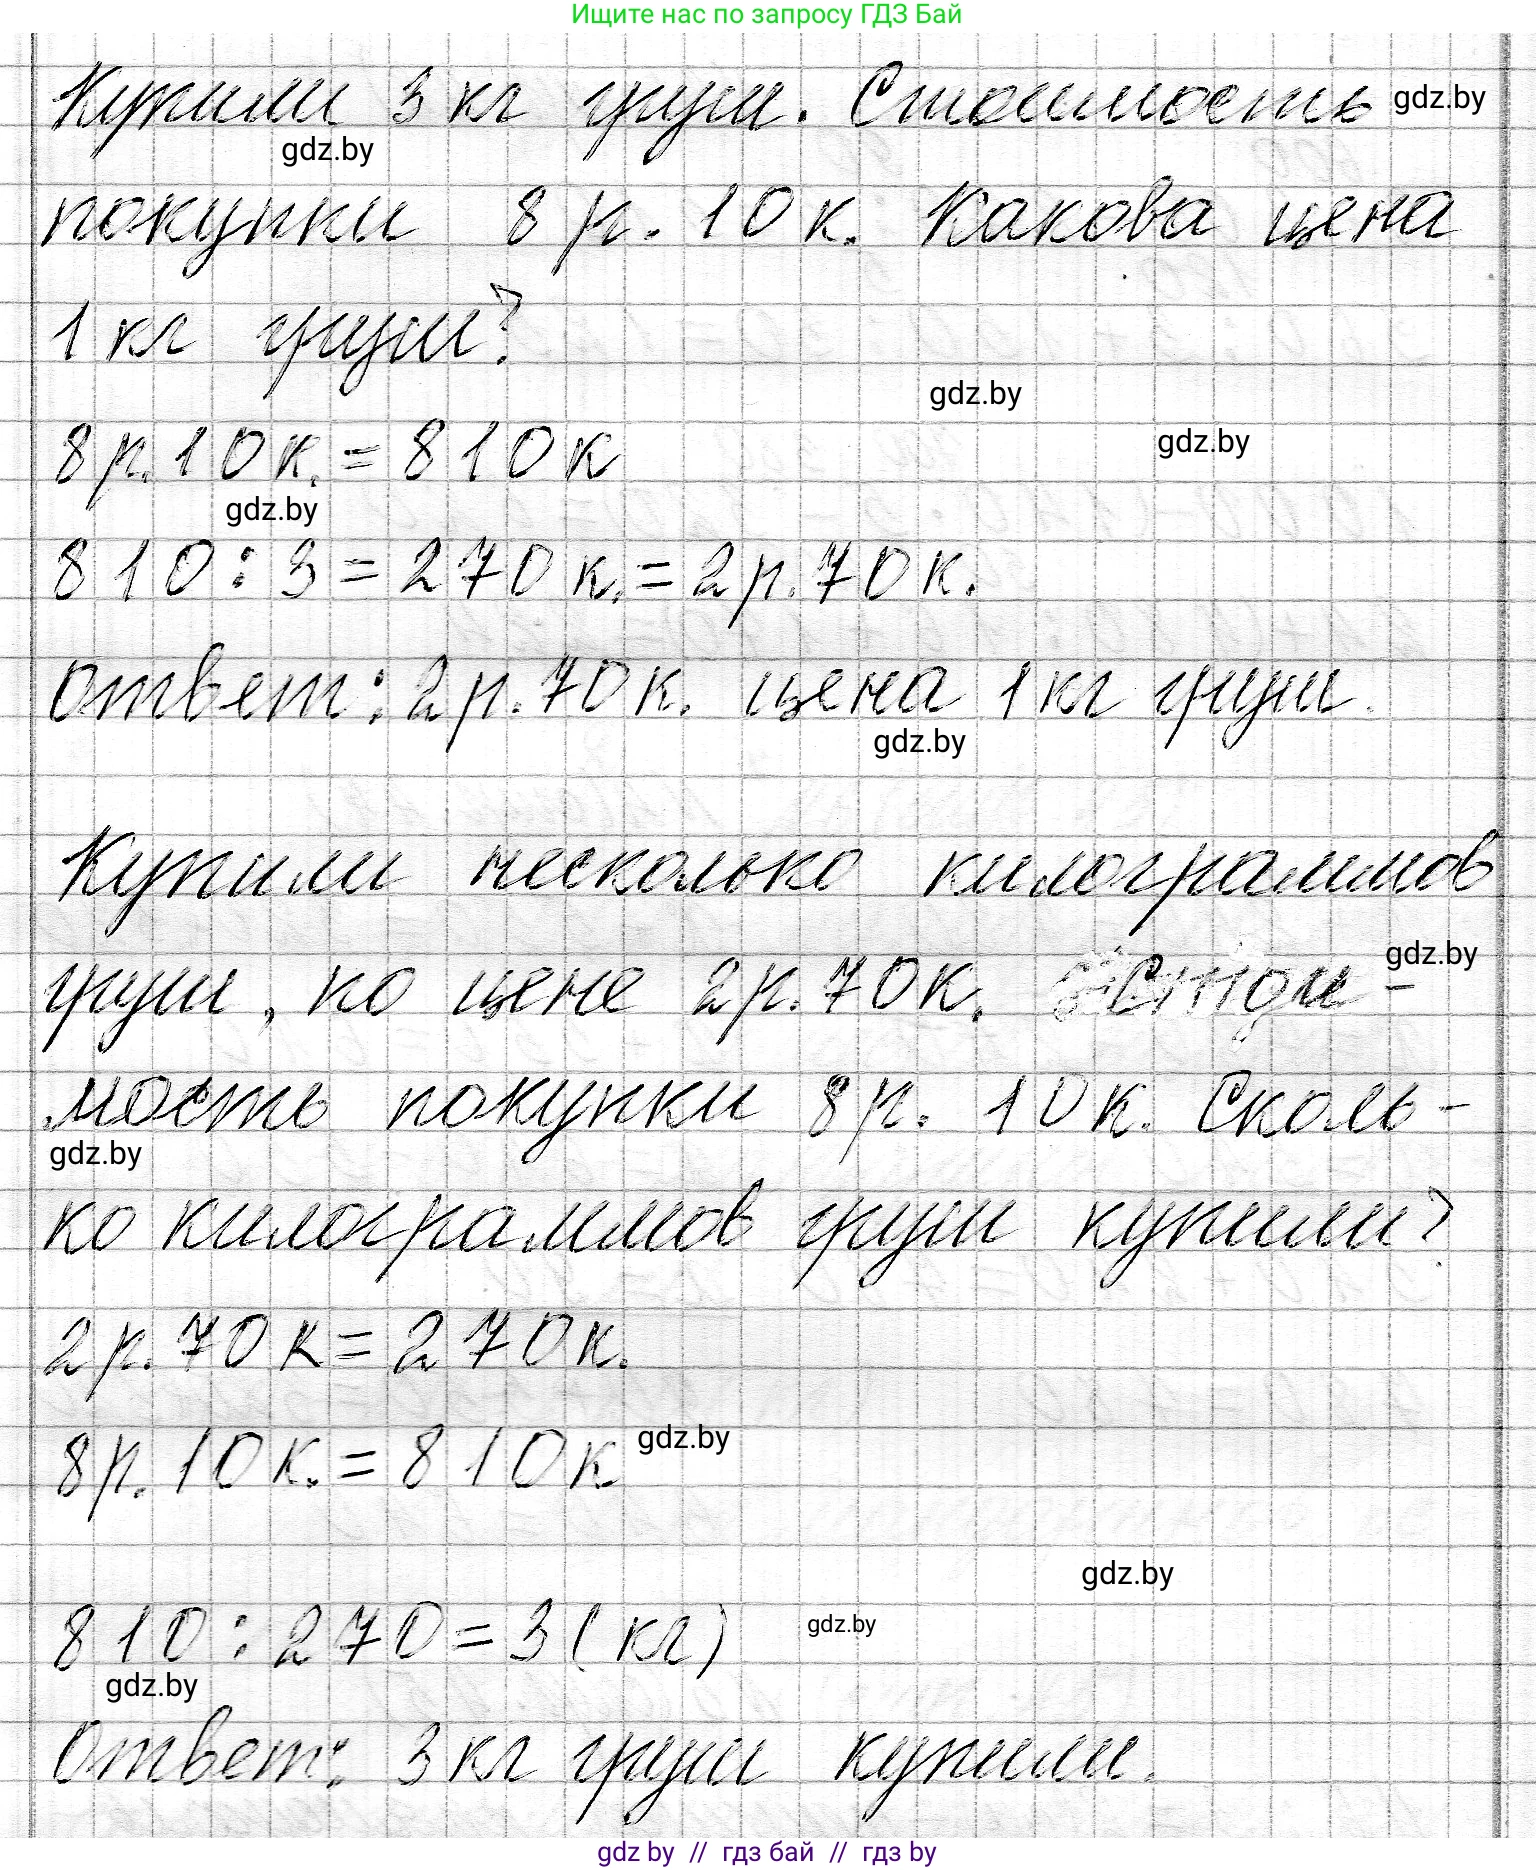 Ищите нас по запросу ГДЗ Бай
Купили 3 кг груш. Стоимость gdz.by
gdz.by
покупки 8 р. 10 к. Какова цена
1 кг груш?
gdz.by
gdz.by
8 р. 10 к. = 810 к
gdz.by
810 : 3 = 270 к. = 2 р. 70 к.
Ответ: 2 р. 70 к. цена 1 кг груш.
gdz.by
Купили несколько килограммов
gdz.by
груш, по цене 2 р. 70 к. Стои-
мость покупки 8 р. 10 к. Сколь-
gdz.by
ко килограммов груш купили?
2 р. 70 к = 270 к.
8 р. 10 к. = 810 к gdz.by
gdz.by
810 : 270 = 3 (кг) gdz.by
gdz.by
Ответ: 3 кг груш купили.
gdz by // гдз бай // гдз by